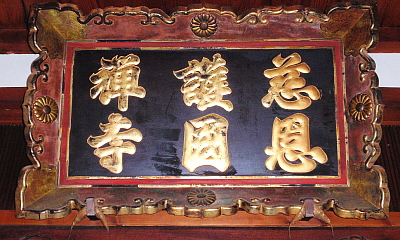 慈恩
護國
禅寺